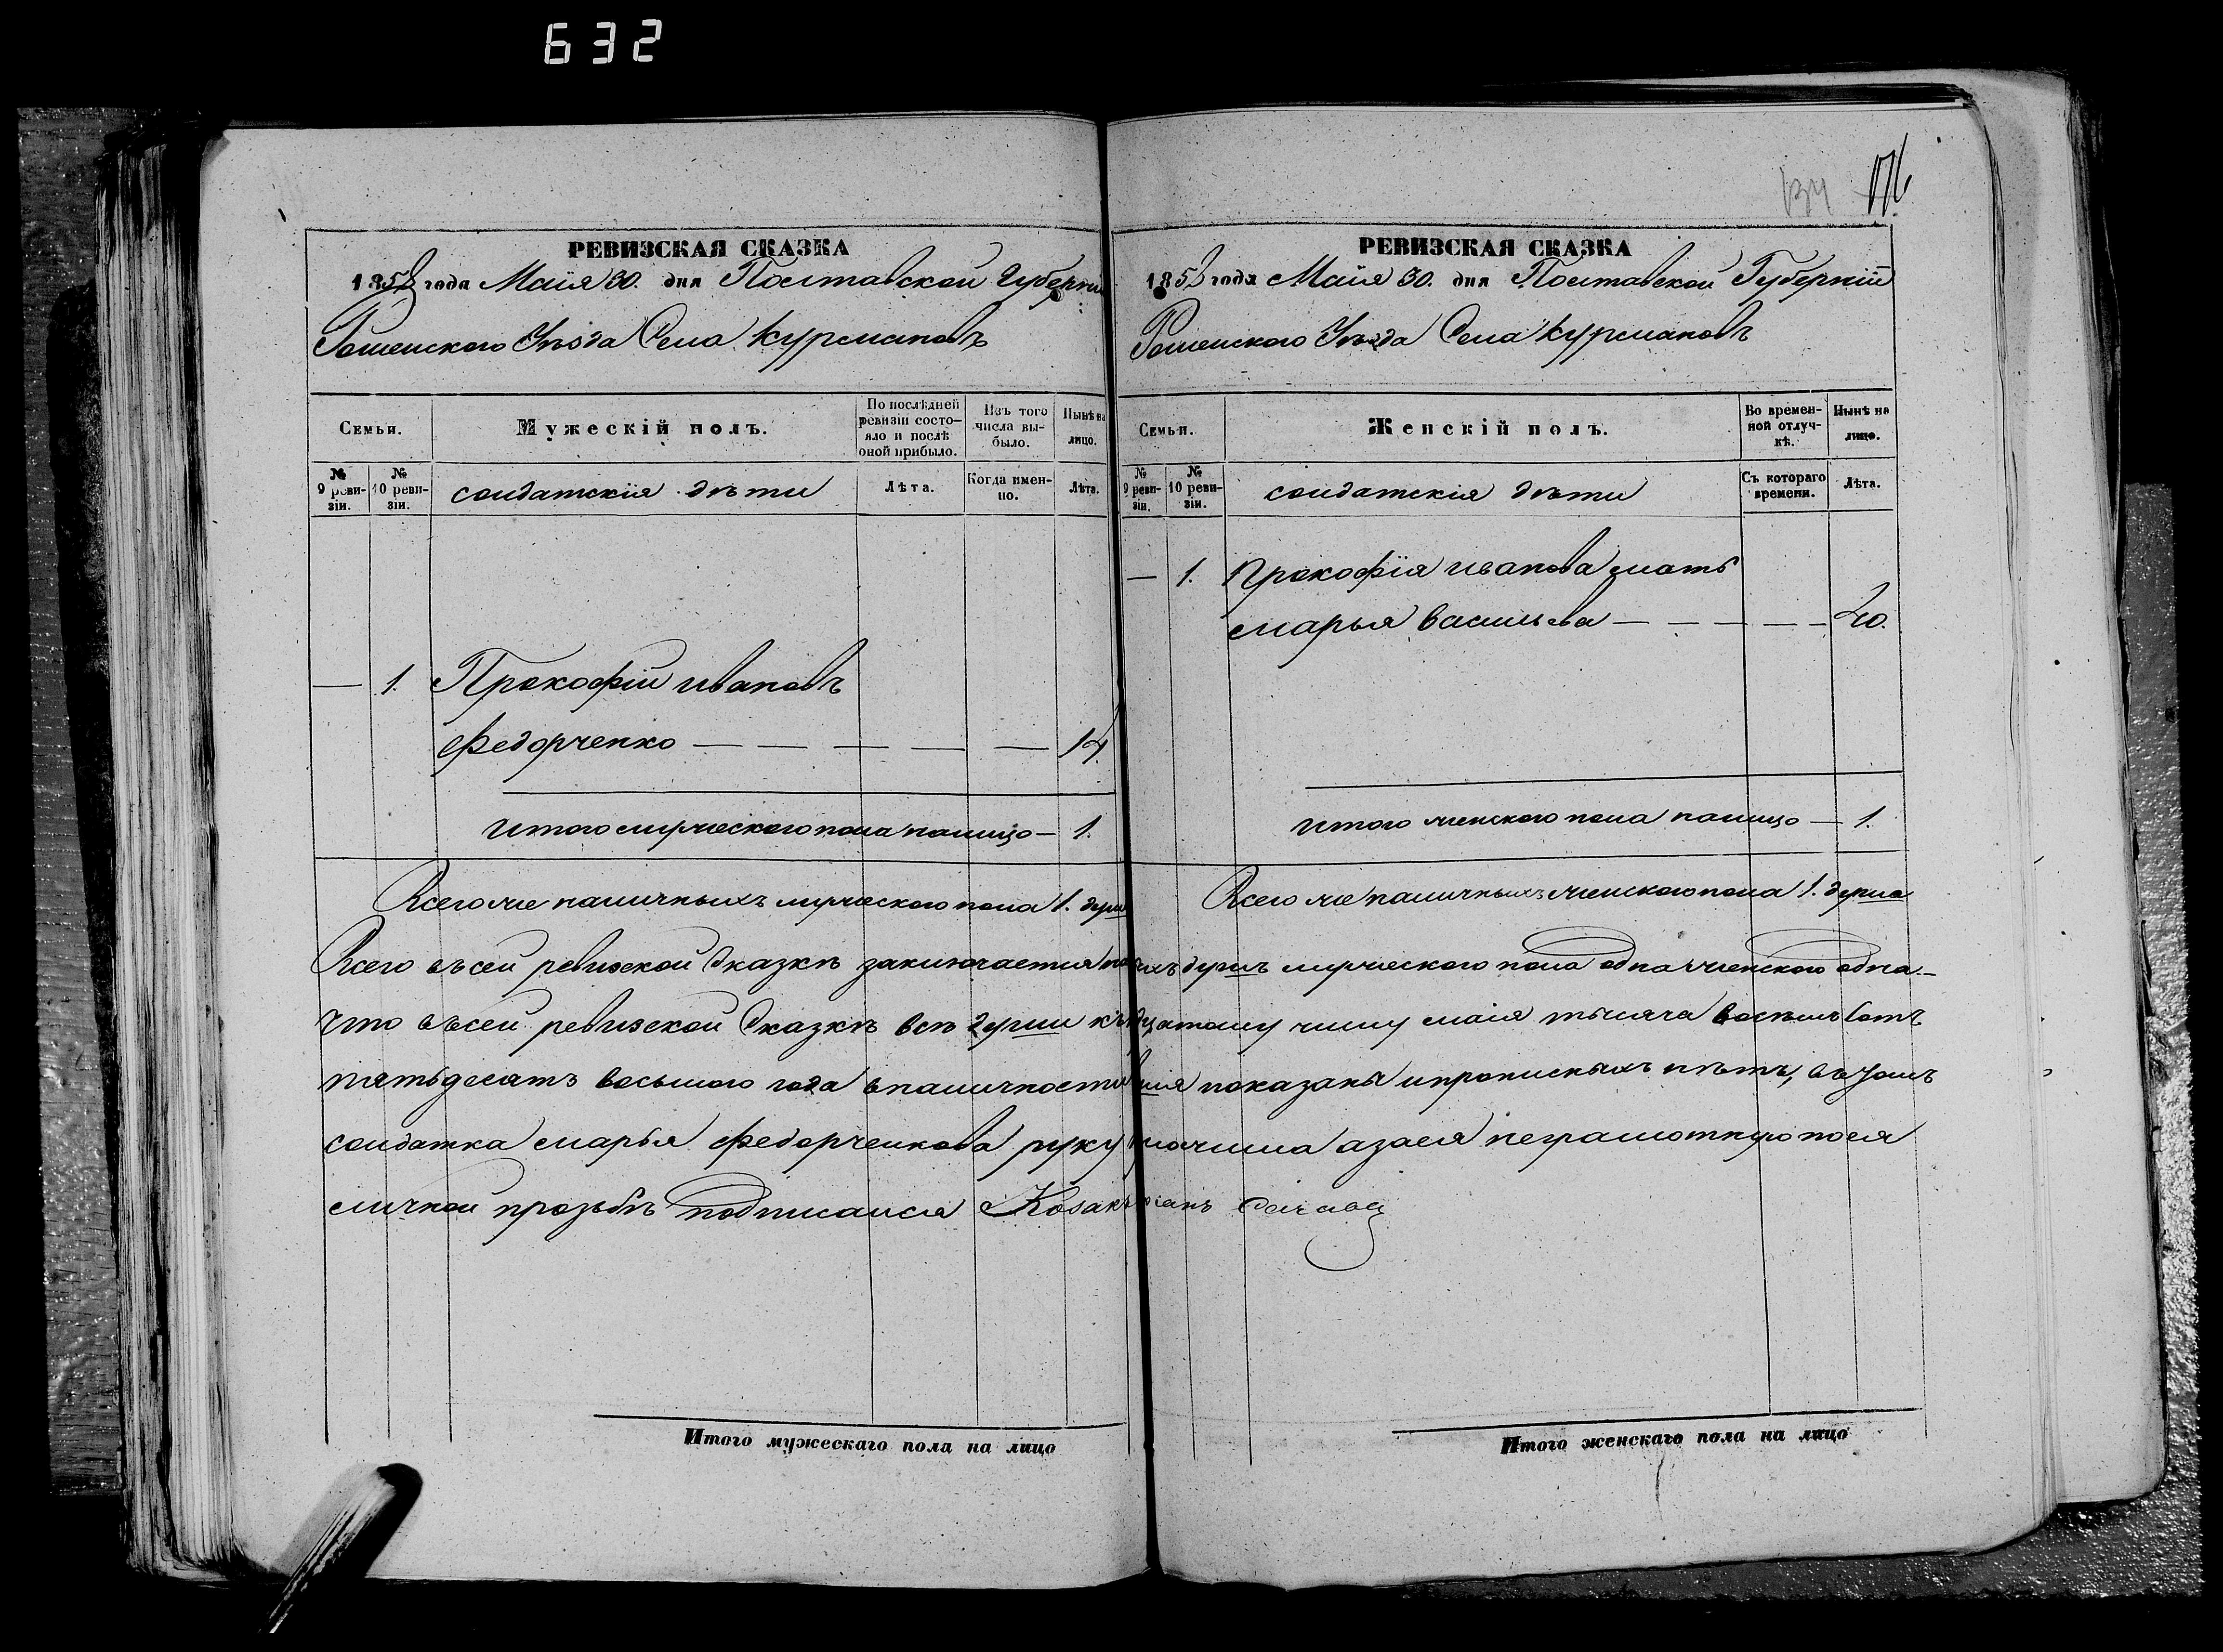 632
134 176
РЕВИЗСКАЯ СКАЗКА
1858 года Маія 30. дня Полтавской Губерніи
Роменского Уѣзда Села Курмановъ
Семьи.
Мужескій полъ.
По послѣдней ревизіи состояло и послѣ оной прибыло.
Изъ того числа выбыло.
Нынѣ на лицо.
№ 9 ревизіи.
№ 10 ревизіи.
солдатскія дѣти
Лѣта.
Когда именно.
Лѣта.
— 1. Прокофій Ивановъ
Федорченко — — — — — 14.
Итого мужеского пола налицо — 1.
Всего же наличныхъ мужеского пола 1. душа
РЕВИЗСКАЯ СКАЗКА
1858 года Маія 30. дня Полтавской Губерніи
Роменского Уѣзда Села Курмановъ
Семьи.
Женскій полъ.
Во временной отлучкѣ.
Нынѣ на лицо.
№ 9 ревизіи.
№ 10 ревизіи.
солдатскія дѣти
Съ котораго времени.
Лѣта.
— 1. Прокофія Иванова мать
Марья Васильева — — — — 40.
Итого женского пола налицо — 1.
Всего же наличныхъ женского пола 1. душа
Всего въ сей ревизской Сказкѣ заключается душъ мужеского пола одна женского одна —
что въ сей ревизской Сказкѣ всѣ души къ числу маія тысяча восемьсотъ
пятьдесятъ восьмого года в наличности показаны и прописныхъ нѣтъ, въ томъ
солдатка Марья Федорченкова руку приложила а за нея неграмотную по ея
личной прозьбѣ подписался Козакъ
Итого мужескаго пола на лицо
Итого женскаго пола на лицо